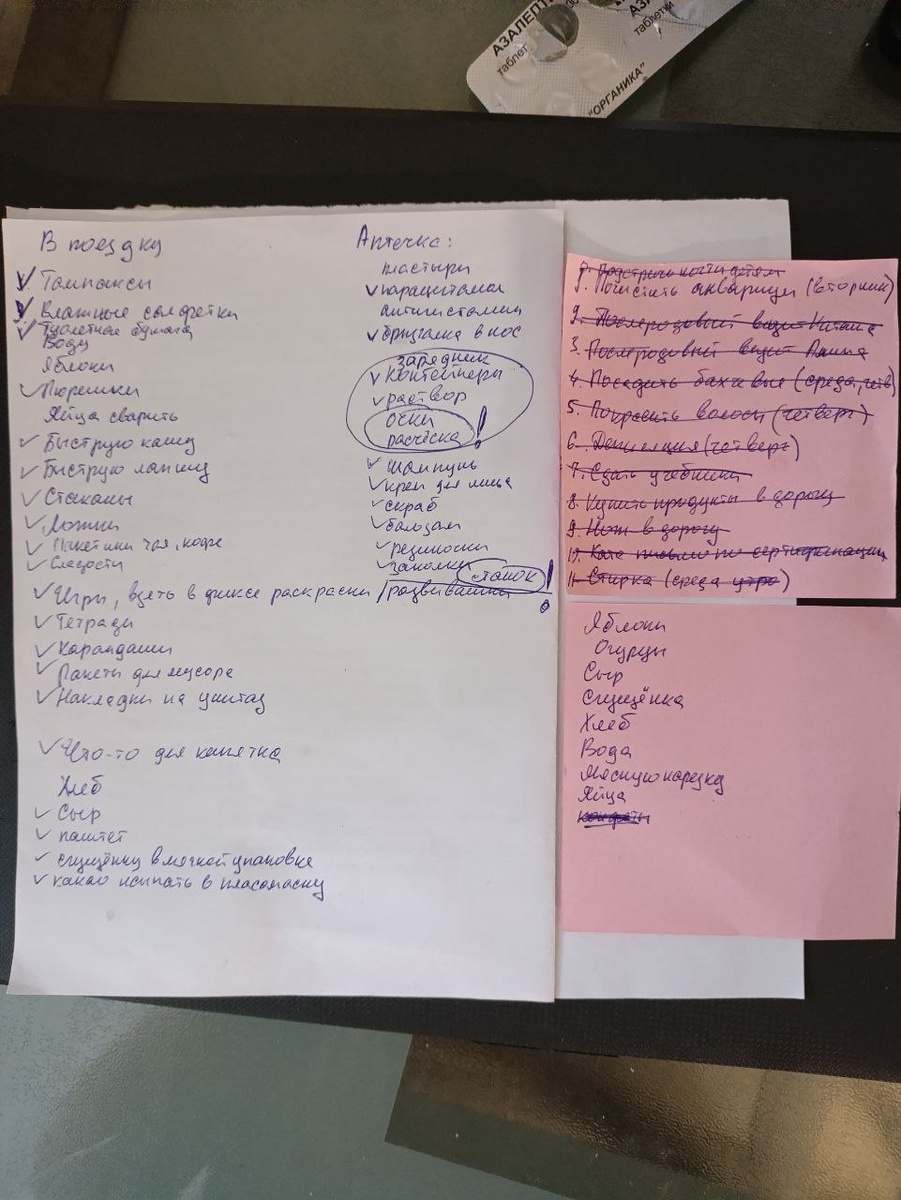 АЗАЛЕПТ
таблет
таблетки
"ОРГАНИКА"
В поездку
Тампаксы
Влажные салфетки
Туалетная бумага
Воду
Яблоки
Пюрешки
Яйца сварить
Быструю кашу
Быструю лапшу
Стаканы
Ложки
Пакетики чая, кофе
Сладости
Игры, взять в фиксе раскраски / развивашки
Тетради
Карандаши
Пакеты для мусора
Накладки на унитаз
Что-то для кипятка
Хлеб
Сыр
паштет
сгущёнку в мягкой упаковке
какао
в
Аптечка:
пластыри
парацетамол
антигистамин
брызгалка в нос
зарядник
контейнеры
раствор
очки
расчёска !
шампунь
крем для лица
скраб
бальзам
резиноски
заколки
станок !
Подстричь ногти детям
1. Почистить аквариум (вторник)
2. Послеродовый визит
3. Послеродовый визит
4. Посадить бахчевые (среда, четв)
5. Покрасить волосы (четверг)
6. Депиляция (четверг)
7. Сдать учебники
8. Купить продукты в дорогу
9. Нож в дорогу
10. Кате письмо по сертификации
11. Стирка (среда утро)
Яблоки
Огурцы
Сыр
Сгущёнка
Хлеб
Вода
Мясную нарезку
Яйца
конфеты